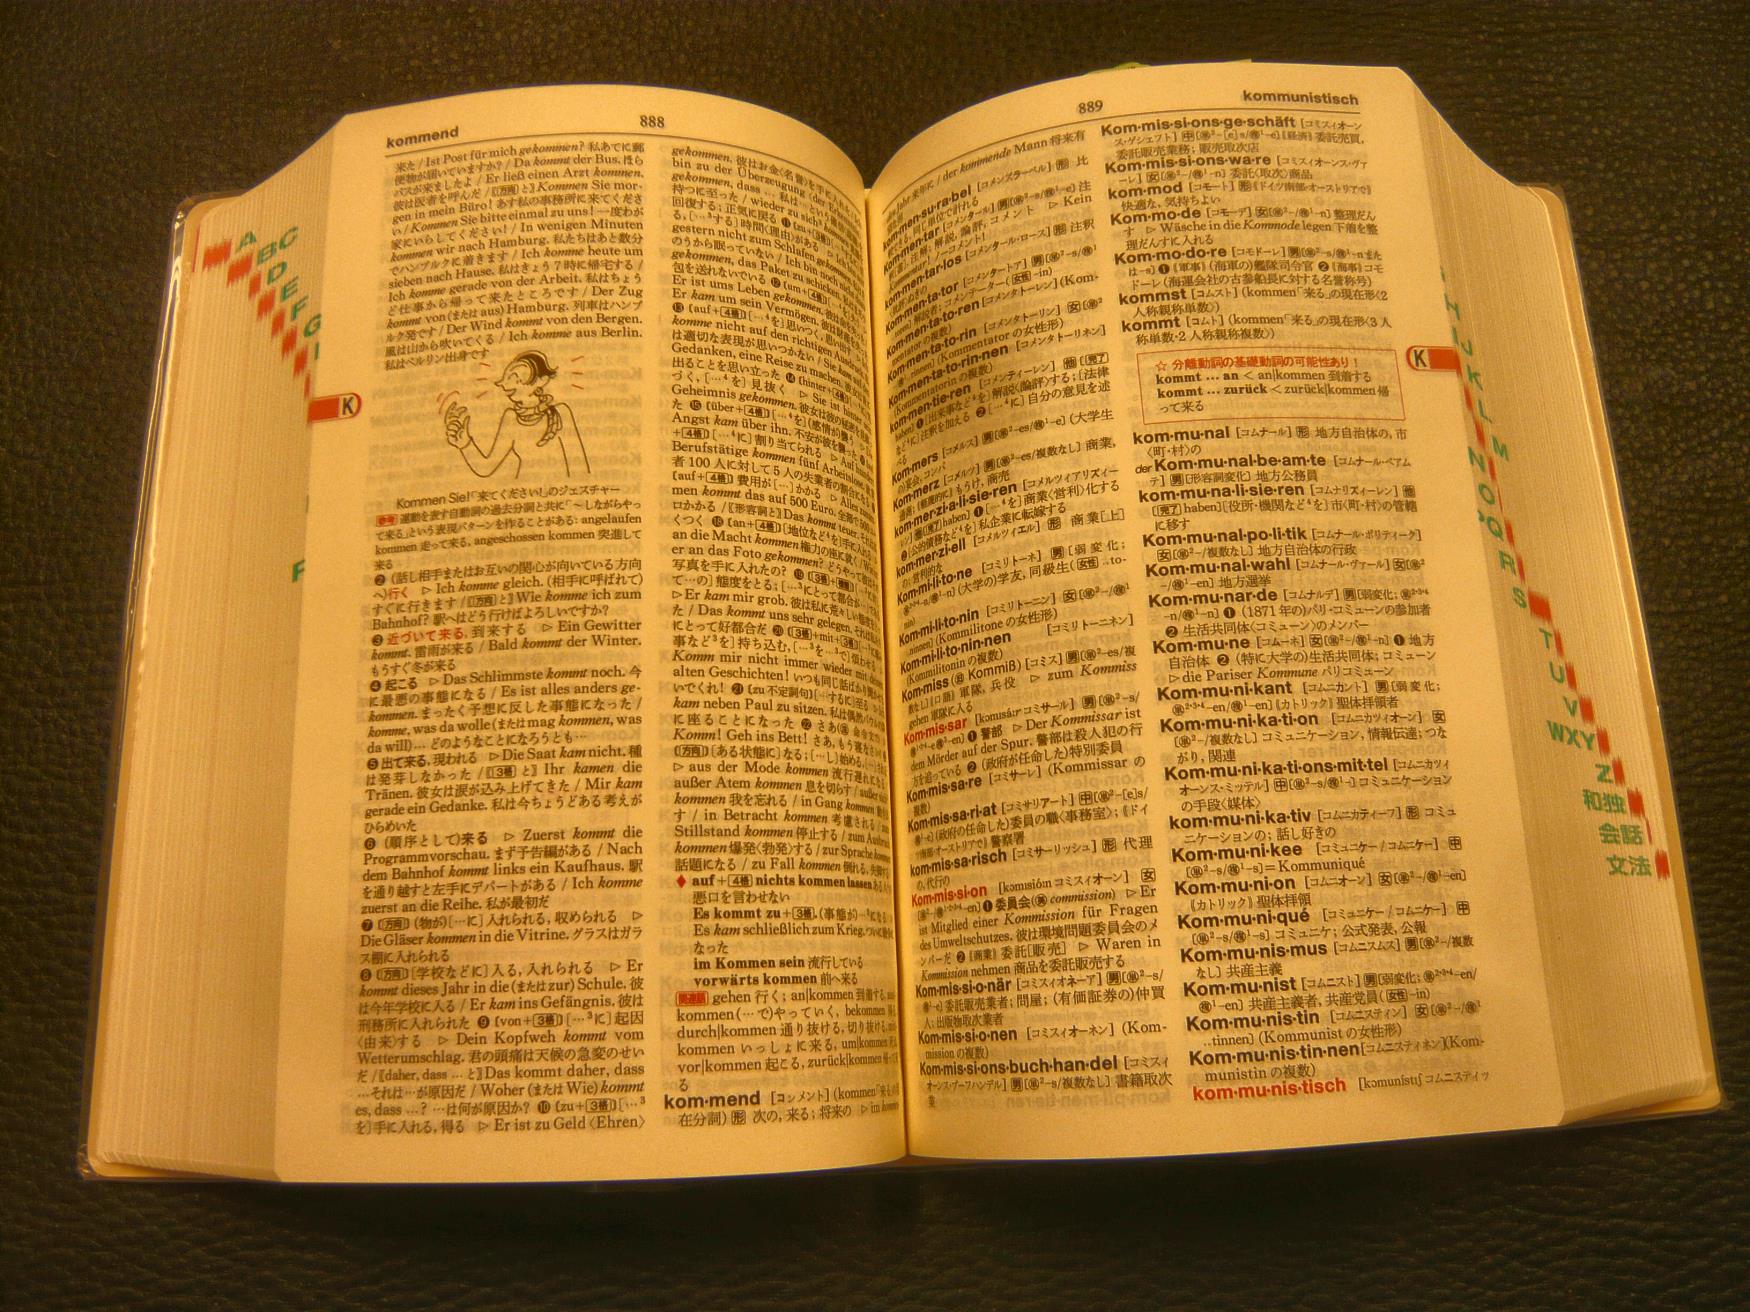 kommend
888
来た / Ist Post für mich gekommen? 私あてに郵
便物が届いていますか? / Da kommt der Bus. ほら
バスが来ましたよ / Er ließ einen Arzt kommen.
彼は医者を呼んだ / 〖方向と〗 Kommen Sie mor-
gen in mein Büro! あす私の事務所に来てくださ
い / Kommen Sie bitte einmal zu uns! 一度わが
家にいらしてください! / In wenigen Minuten
kommen wir nach Hamburg. 私たちはあと数分
でハンブルクに着きます / Ich komme heute um
sieben nach Hause. 私はきょう7時に帰宅する /
Ich komme gerade von der Arbeit. 私はちょう
ど仕事から帰って来たところです / Der Zug
kommt von (または aus) Hamburg. 列車はハンブ
ルク発です / Der Wind kommt von den Bergen.
風は山から吹いてくる / Ich komme aus Berlin.
私はベルリン出身です
K
Kommen Sie!「来てください!」のジェスチャー
参考 運動を表す自動詞の過去分詞と共に「〜しながらやっ
て来る」という表現パターンを作ることがある: angelaufen
kommen 走って来る, angeschossen kommen 突進して
来る
❷ (話し相手またはお互いの関心が向いている方向
へ)行く ▷ Ich komme gleich. (相手に呼ばれて)
すぐに行きます / 〖方向と〗 Wie komme ich zum
Bahnhof? 駅へはどう行けばよろしいですか?
❸ 近づいて来る, 到来する ▷ Ein Gewitter
kommt. 雷雨が来る / Bald kommt der Winter.
もうすぐ冬が来る
❹ 起こる ▷ Das Schlimmste kommt noch. 今
に最悪の事態になる / Es ist alles anders ge-
kommen. まったく予想に反した事態になった /
komme, was da wolle (または mag kommen, was
da will)… どのようなことになろうとも…
❺ 出て来る, 現われる ▷ Die Saat kam nicht. 種
は発芽しなかった / 〖3格と〗 Ihr kamen die
Tränen. 彼女は涙が込み上げてきた / Mir kam
gerade ein Gedanke. 私は今ちょうどある考えが
ひらめいた
❻ (順序として)来る ▷ Zuerst kommt die
Programmvorschau. まず予告編がある / Nach
dem Bahnhof kommt links ein Kaufhaus. 駅
を通り越すと左手にデパートがある / Ich komme
zuerst an die Reihe. 私が最初だ
❼ 〖方向〗 (物が)[…に] 入れられる, 収められる ▷
Die Gläser kommen in die Vitrine. グラスはガラ
ス棚に入れられる
❽ 〖方向〗 [学校などに] 入る, 入れられる ▷ Er
kommt dieses Jahr in die (または zur) Schule. 彼
は今年学校に入る / Er kam ins Gefängnis. 彼は
刑務所に入れられた ❾ 〖von+3格〗 […³に] 起因
〈由来〉する ▷ Dein Kopfweh kommt vom
Wetterumschlag. 君の頭痛は天候の急変のせい
だ / 〖daher, dass … と〗 Das kommt daher, dass
…それは…が原因だ / Woher (または Wie) kommt
es, dass …? …は何が原因か? ❿ 〖zu+3格〗 […³
を] 手に入れる, 得る ▷ Er ist zu Geld 〈Ehren〉
gekommen. 彼はお金〈名誉〉を手に
bin zu der Überzeugung
gekommen, dass … 私は…という
持つに至った / wieder zu sich
回復する; 正気に戻る ⓫
る, […³する] 時間〈理由〉がある
gestern nicht zum Schlafen
のうから眠っていない / Ich bin noch
gekommen, das Paket zu
包を送れないでいる ⓬ 〖um+4格〗
Er ist ums Leben gekommen.
Er kam um sein Vermögen.
⓭ 〖auf+4格〗 […⁴を] 思いつく,
komme nicht auf den richtigen
は適切な表現が思いつかない
Gedanken, eine Reise zu machen.
出ることを思い立った ⓮ 〖hinter+4格〗
づく, […⁴を] 見抜く ▷ Sie ist
Geheimnis gekommen. 彼女は彼の
た ⓯ 〖über+4格〗 […⁴を] (感情が) 襲う
Angst kam über ihn. 不安が彼を襲った
+4格〗 […⁴に] 割り当てられる ▷ Auf
Berufstätige kommen fünf Arbeitslose.
者100人に対して5人の失業者の割合になる
〖auf+4格〗 費用が […] かかる ▷ Alles
men kommt das auf 500 Euro. 全部で500
ロかかる / 〖形容詞と〗 Das kommt teuer.
くつく ⓲ 〖an+4格〗 [地位など⁴を] 手に入れる
an die Macht kommen 権力の座に就く
er an das Foto gekommen? どうやって彼は
写真を手に入れたの? ⓳
て…の] 態度をとる; […³にとって都合が
▷ Er kam mir grob. 彼は私に荒々しい態度
た / Das kommt uns sehr gelegen. それは
にとって好都合だ ⓴ 〖3格+mit+3格〗
事など³を] 持ち込む, […³を…³で] 煩わせる
Komm mir nicht immer wieder mit
alten Geschichten! いつも同じ話ばかり
いでくれ! ㉑ 〖zu 不定詞句〗 […するに] 至る
kam neben Paul zu sitzen. 私は偶然パウルの
に座ることになった ㉒ さあ
Komm! Geh ins Bett! さあ, もう寝なさい
〖方向〗 [ある状態に] なる; […し] 始める
▷ aus der Mode kommen 流行遅れになる
außer Atem kommen 息を切らす
kommen 我を忘れる / in Gang kommen
す / in Betracht kommen 考慮される
Stillstand kommen 停止する / zum
kommen 爆発〈勃発〉する / zur Sprache
話題になる / zu Fall kommen 倒れる,
♦ auf+4格 nichts kommen lassen
悪口を言わせない
Es kommt zu+3格. (事態が)…になる
Es kam schließlich zum Krieg. ついに
なった
im Kommen sein 流行している
vorwärts kommen 前へ来る
関連語 gehen 行く; an|kommen 到着する,
kommen (…で)やっていく, bekommen
durch|kommen 通り抜ける, 切り抜ける,
kommen いっしょに来る, um|kommen
vor|kommen 起こる, zurück|kommen
る
kom·mend [コンメント] (kommen「来る」の
在分詞) 形 次の, 来る; 将来の ▷ im
889
kommunistisch
Jahr 来年に / der kommende Mann 将来有
kom·men·su·ra·bel [コメンズラーベル] 形 比
同じ単位で計れる
Kom·men·tar [コメンタール] 男 〖単²-s/複¹-e〗 注
釈, 注解; 解説, 論評, コメント ▷ Kein
Kommentar! ノーコメント!
kom·men·tar·los [コメンタール・ロース] 形 注釈
Kom·men·ta·tor [コメンタートア] 男 〖単²-s/複¹
解説者, コメンテーター (女性 -in)
Kom·men·ta·to·ren [コメンタトーレン] (Kom-
mentator の複数)
Kom·men·ta·to·rin [コメンタトーリン] 女
(Kommentator の女性形)
Kom·men·ta·to·rin·nen [コメンタトーリネン]
(Kommentatorin の複数)
kom·men·tie·ren [コメンティーレン] 他 〖完了
haben〗 ❶ [出来事など⁴を] 解説〈論評〉する; [法律
など⁴に] 注釈を加える ❷ […⁴に] 自分の意見を述
べる
Kom·mers [コメルス] 男 〖単²-es/複¹-e〗 (大学生
の)宴会, コンパ
Kom·merz [コメルツ] 男 〖単²-es/複数なし〗 商業,
通商; 《軽蔑的に》 もうけ, 商売
kom·mer·zi·a·li·sie·ren [コメルツィアリズィー
レン] 他 〖完了 haben〗 ❶ […⁴を] 商業〈営利〉化する
❷ [公的債務など⁴を] 私企業に転嫁する
kom·mer·zi·ell [コメルツィエル] 形 商業[上]
の; 営利的な
Kom·mi·li·to·ne [コミリトーネ] 男 〖弱変化;
(大学の)学友, 同級生 (女性 ..to-
nin)
Kom·mi·li·to·nin [コミリトーニン] 女 〖単²-/複¹
..ninnen〗 (Kommilitone の女性形)
Kom·mi·li·to·nin·nen [コミリトーニネン]
(Kommilitonin の複数)
Kom·miss (旧 Kommiß) [コミス] 男 〖単²-es/複
数なし〗 《口語》 軍隊, 兵役 ▷ zum Kommiss
gehen 軍隊に入る
Kom·mis·sar [kɔmɪsáːr コミサール] 男 〖単²-s/
❶ 警部 ▷ Der Kommissar ist
dem Mörder auf der Spur. 警部は殺人犯の行
方を追っている ❷ (政府が任命した)特別委員
Kom·mis·sa·re [コミサーレ] (Kommissar の
複数)
Kom·mis·sa·ri·at [コミサリアート] 中 〖単²-[e]s/
複¹-e〗 (政府の任命した)委員の職〈事務室〉; 《ドイ
ツ南部・オーストリアで》 警察署
kom·mis·sa·risch [コミサーリッシュ] 形 代理
の, 代行の
Kom·mis·si·on [kɔmɪsióːn コミスィオーン] 女
❶ 委員会 (英 commission) ▷ Er
ist Mitglied einer Kommission für Fragen
des Umweltschutzes. 彼は環境問題委員会のメ
ンバーだ ❷ 《商業》 委託[販売] ▷ Waren in
Kommission nehmen 商品を委託販売する
Kom·mis·si·o·när [コミスィオネーア] 男 〖単²-s/
複¹-e〗 委託販売業者; 問屋; (有価証券の)仲買
人; 出版物取次業者
Kom·mis·si·o·nen [コミスィオーネン] (Kom-
mission の複数)
Kom·mis·si·ons·buch·han·del [コミスィ
オーンス・ブーフハンデル] 男 〖単²-s/複数なし〗 書籍取次
業
Kom·mis·si·ons·ge·schäft [コミスィオーン
ス・ゲシェフト] 中 〖単²-[e]s/複¹-e〗 《経済》 委託売買,
委託販売業務; 販売取次店
Kom·mis·si·ons·wa·re [コミスィオーンス・ヴァ
ーレ] 女 〖単²-/複¹-n〗 委託〈取次〉商品
kom·mod [コモート] 形 《ドイツ南部・オーストリアで》
快適な, 気持ちよい
Kom·mo·de [コモーデ] 女 〖単²-/複¹-n〗 整理だん
す ▷ Wäsche in die Kommode legen 下着を整
理だんすに入れる
Kom·mo·do·re [コモドーレ] 男 〖単²-s/複¹-n また
は -s〗 ❶ 《軍事》 (海軍の)艦隊司令官 ❷ 《海事》 コモ
ドーレ (海運会社の古参船長に対する名誉称号)
kommst [コムスト] (kommen「来る」の現在形〈2
人称親称単数〉)
kommt [コムト] (kommen「来る」の現在形〈3人
称単数・2人称親称複数〉)
☆ 分離動詞の基礎動詞の可能性あり!
kommt … an < an|kommen 到着する
kommt … zurück < zurück|kommen 帰
って来る
kom·mu·nal [コムナール] 形 地方自治体の, 市
〈町・村〉の
der Kom·mu·nal·be·am·te [コムナール・ベアム
テ] 男 〖形容詞変化〗 地方公務員
kom·mu·na·li·sie·ren [コムナリズィーレン] 他
〖完了 haben〗 [役所・機関など⁴を] 市〈町・村〉の管轄
に移す
Kom·mu·nal·po·li·tik [コムナール・ポリティーク]
女 〖単²-/複数なし〗 地方自治体の行政
Kom·mu·nal·wahl [コムナール・ヴァール] 女 〖単²
-/複¹-en〗 地方選挙
Kom·mu·nar·de [コムナルデ] 男 〖弱変化; 単²·³·⁴
-n/複¹-n〗 ❶ (1871年の)パリ・コミューンの参加者
❷ 生活共同体〈コミューン〉のメンバー
Kom·mu·ne [コムーネ] 女 〖単²-/複¹-n〗 ❶ 地方
自治体 ❷ (特に大学の)生活共同体; コミューン
▷ die Pariser Kommune パリコミューン
Kom·mu·ni·kant [コムニカント] 男 〖弱変化;
単²·³·⁴-en/複¹-en〗 《カトリック》 聖体拝領者
Kom·mu·ni·ka·ti·on [コムニカツィオーン] 女
〖単²-/複数なし〗 コミュニケーション, 情報伝達; つな
がり, 関連
Kom·mu·ni·ka·ti·ons·mit·tel [コムニカツィ
オーンス・ミッテル] 中 〖単²-s/複¹-〗 コミュニケーション
の手段〈媒体〉
kom·mu·ni·ka·tiv [コムニカティーフ] 形 コミュ
ニケーションの; 話し好きの
Kom·mu·ni·kee [コミュニケー / コムニケー] 中
〖単²-s/複¹-s〗 = Kommuniqué
Kom·mu·ni·on [コムニオーン] 女 〖単²-/複¹-en〗
《カトリック》 聖体拝領
Kom·mu·ni·qué [コミュニケー / コムニケー] 中
〖単²-s/複¹-s〗 コミュニケ; 公式発表, 公報
Kom·mu·nis·mus [コムニスムス] 男 〖単²-/複数
なし〗 共産主義
Kom·mu·nist [コムニスト] 男 〖弱変化; 単²·³·⁴-en/
複¹-en〗 共産主義者, 共産党員 (女性 -in)
Kom·mu·nis·tin [コムニスティン] 女 〖単²-/複¹
..tinnen〗 (Kommunist の女性形)
Kom·mu·nis·tin·nen [コムニスティネン] (Kom-
munistin の複数)
kom·mu·nis·tisch [kɔmunístɪʃ コムニスティッ
K
A
B C
D
E
F
G
I
J
K
L
M
N
O
P
Q
R
S
T
U
V
WXY
Z
和独
会話
文法